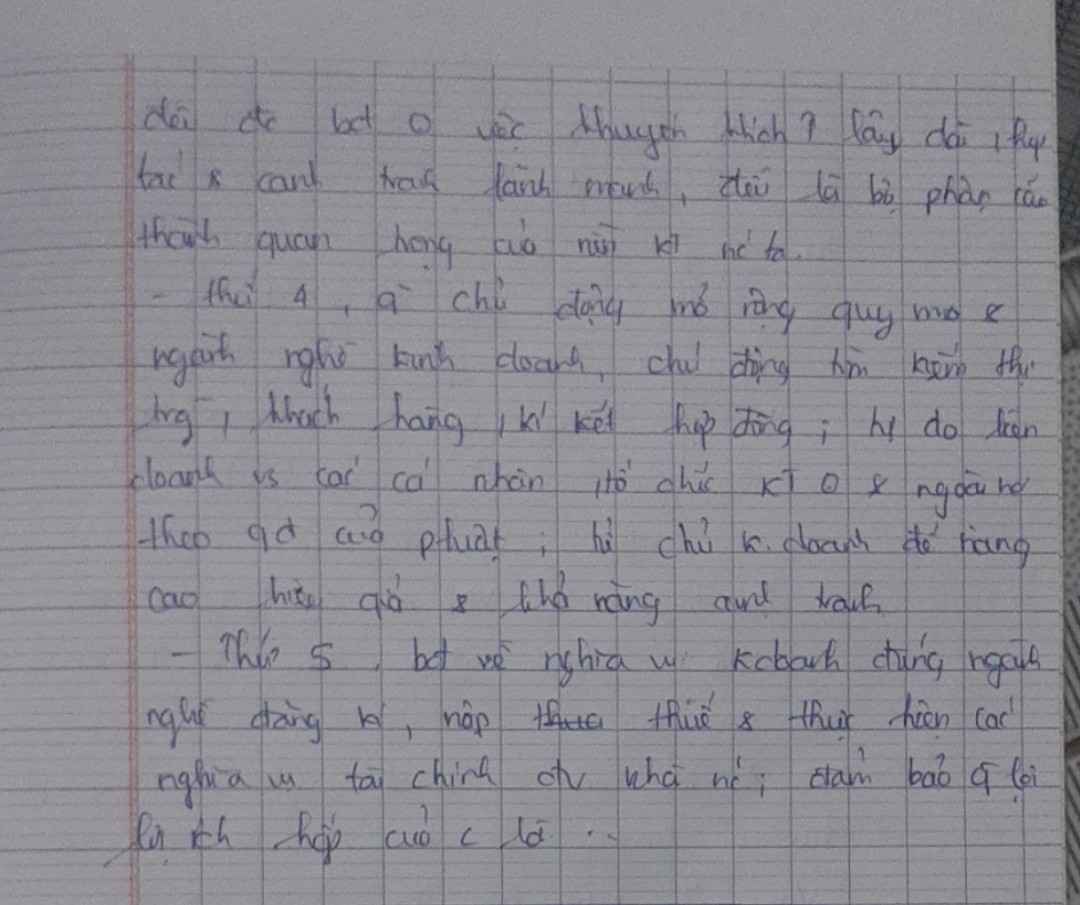 đãi đc bđ o việc khuyến khích? lâu dài, hợp
tác & cạnh tranh lành mạnh, đều là bộ phận cấu
thành quan trọng của nền kt nc ta.
- thứ 4, q` chủ động mở rộng quy mô &
ngành nghề kinh doanh, chủ động tìm kiếm thị
trg`, khách hàng, kí kết hợp đồng; tự do liên
doanh vs các cá nhân, tổ chức KT o & ngoài nc
theo qđ của pluật; tự chủ k.doanh để nâng
cao hiệu quả & khả năng cạnh tranh
- Thứ 5, bđ về nghĩa vụ kdoanh đúng ngành
nghề đăng kí, nộp thuế & thực hiện các
nghĩa vụ tài chính đv nhà nc; đảm bảo q` lợi
ích hợp của c lđ ..